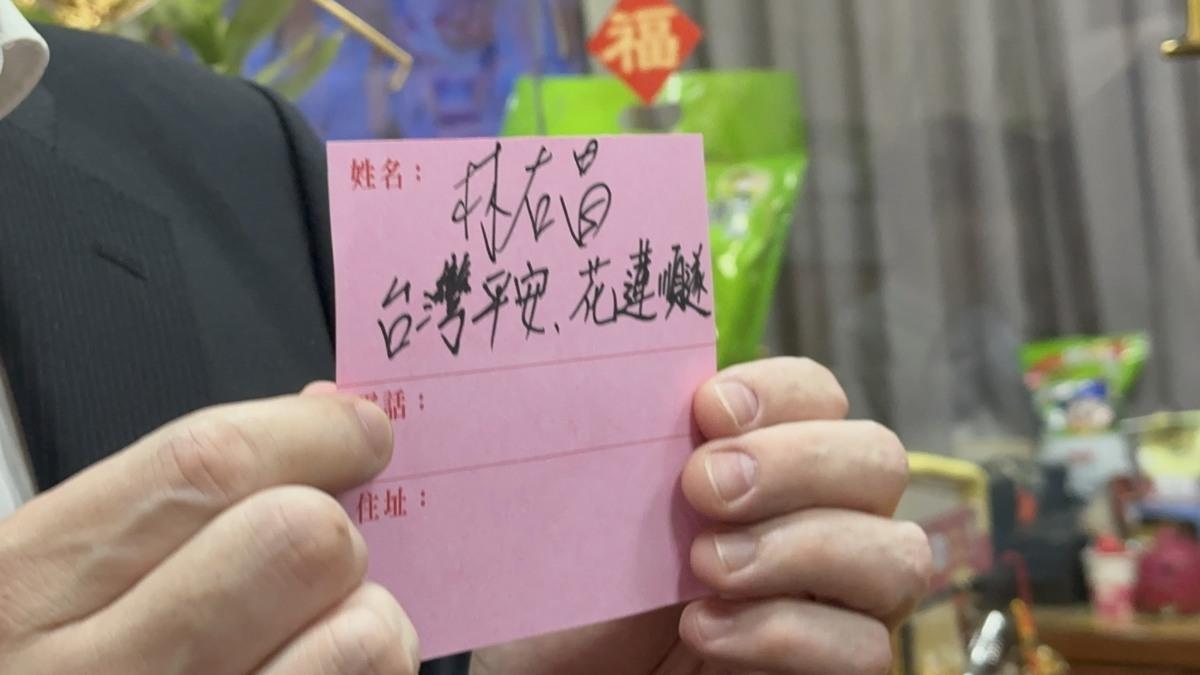 福
姓名：林右昌
台灣平安、花蓮順遂
電話：
住址：